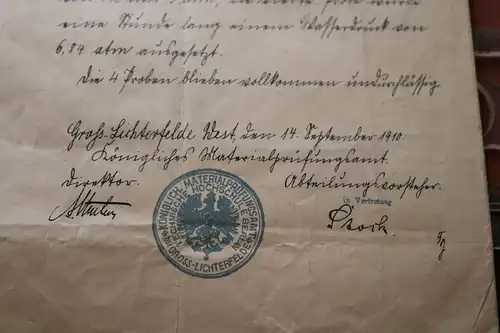 eine Stunde lang einem Wasserdruck von
6,84 atm ausgesetzt.
Die 4 Proben blieben vollkommen undurchlässig.
Gross-Lichterfelde West, den 14. September 1910.
Königliches Materialprüfungsamt.
Direktor.
Abteilungsvorsteher.
in Vertretung
KÖNIGLICH. MATERIALPRÜFUNGSAMT
TECHNISCHE HOCHSCHULE BERLIN
GROSS-LICHTERFELDE